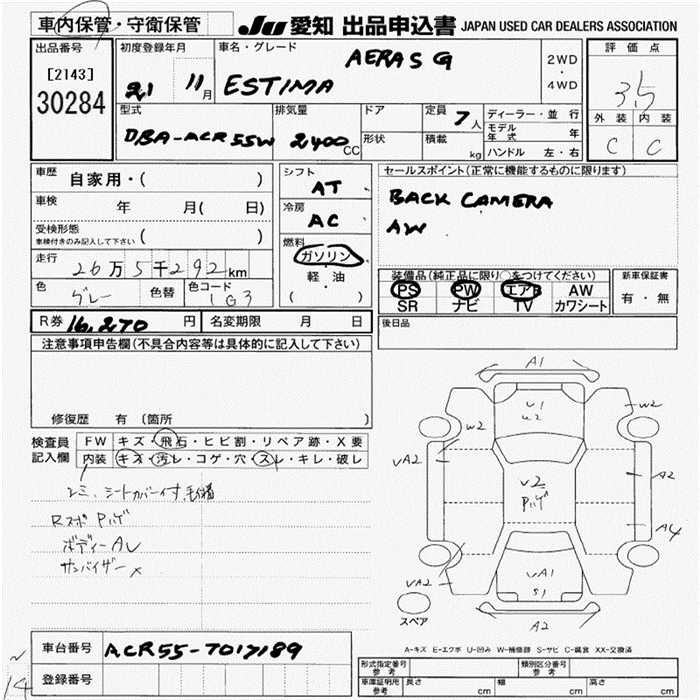 車内保管・守衛保管
JU 愛知 出品申込書 JAPAN USED CAR DEALERS ASSOCIATION
出品番号
[2143]
30284
初度登録年月
21 11月
車名・グレード
AERAS G
ESTIMA
2WD
・
4WD
評価点
3.5
外装 内装
C C
型式
DBA-ACR55W
排気量
2400CC
ドア
形状
定員 7人
積載 kg
ディーラー・並行
モデル年式 年
ハンドル 左・右
車歴 自家用・( )
車検 年 月( 日)
受検形態
車検付きのみ記入して下さい ( )
走行 26万5千292km
色 グレー 色替 色コード 1G3
シフト
AT
冷房
AC
燃料
ガソリン
軽・油
( )
セールスポイント(正常に機能するものに限ります)
BACK CAMERA
AW
装備品(純正品に限り○をつけてください)
PS PW エアB AW
SR ナビ TV カワシート
新車保証書
有・無
R券 16,270円 名変期限 月 日
後日品
注意事項申告欄(不具合内容等は具体的に記入して下さい)
修復歴 有 (箇所 )
検査員記入欄
FW キズ・飛石・ヒビ割・リペア跡・X要
内装 キズ・汚レ・コゲ・穴・スレ・キレ・破レ
シートカバー付
Rスポ Pハゲ
ボディー AU
サンバイザー x
A1
U1
W2
W2
W2
UA2
U2
Pハゲ
A2
A4
UA2
UA1
S1
UA2
A2
スペア
A-キズ E-エクボ U-凹み W-補修跡 S-サビ C-腐食 XX-交換済
車台番号 ACR55-7017189
登録番号
14
形式指定番号 参考
類別区分番号 参考
車庫証明用 参考 長さ cm 幅 cm 高さ cm